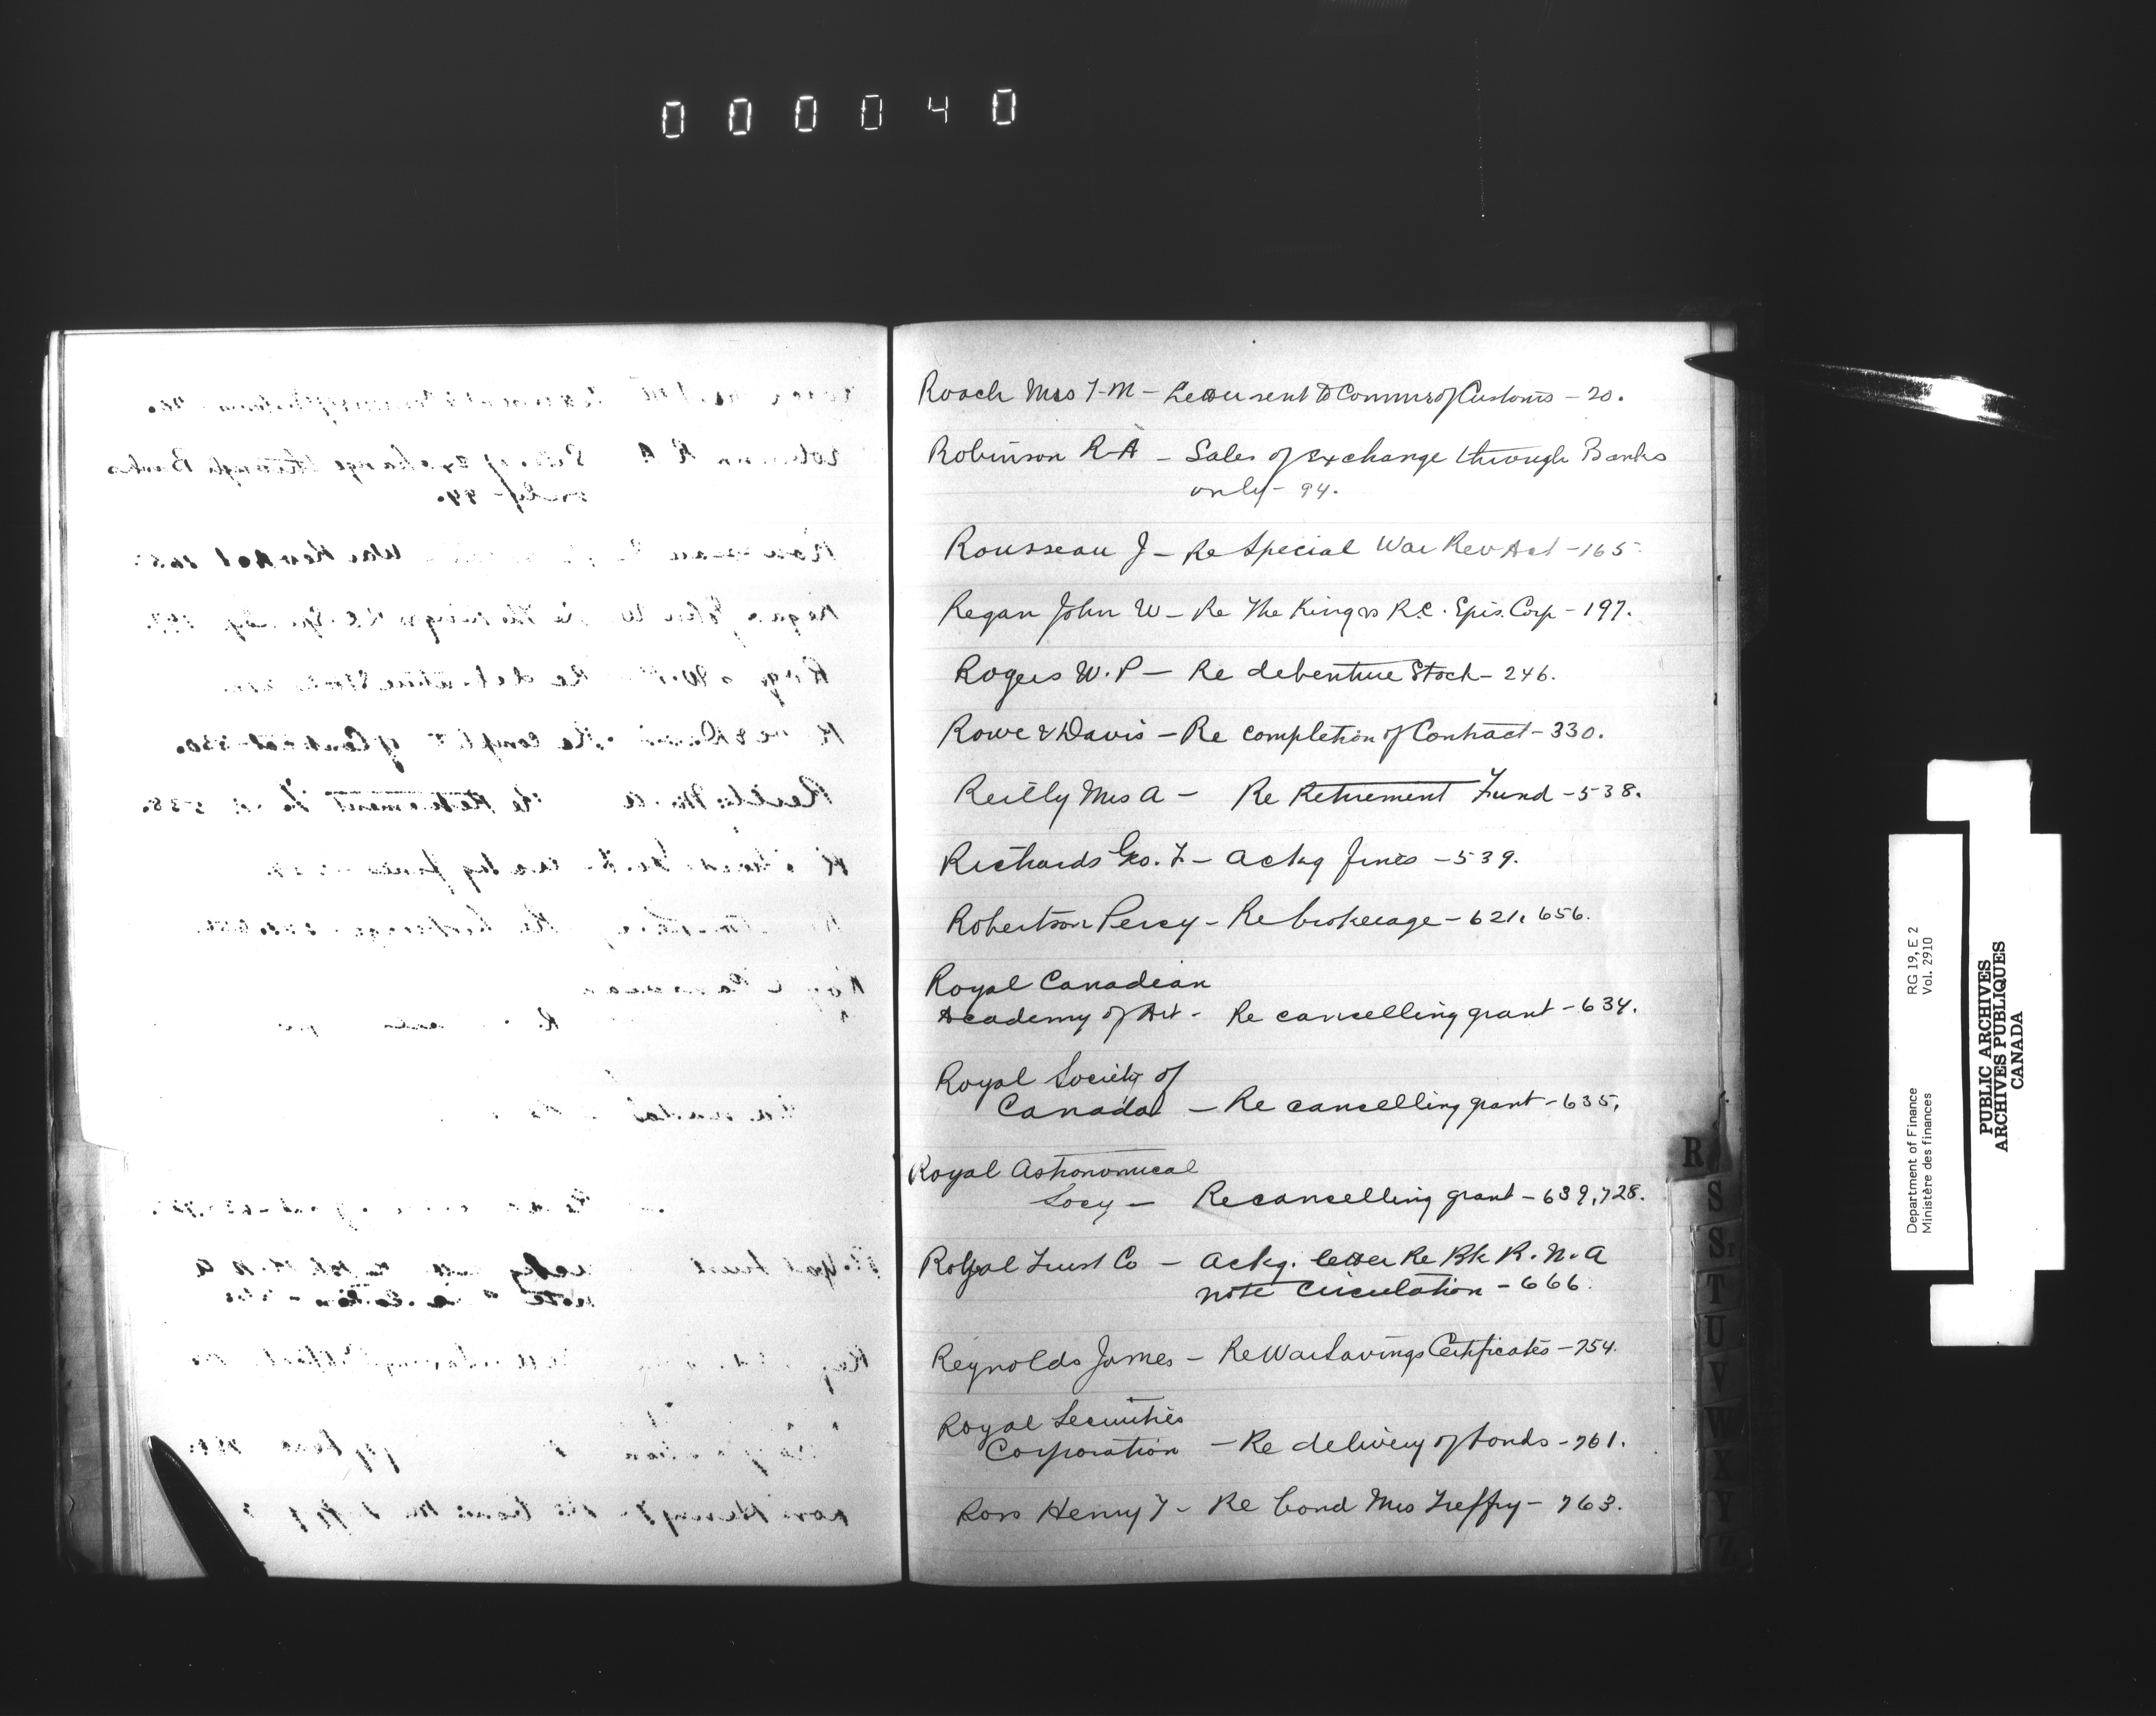 000040
Roach Mrs T-M - Letter sent to Commr of Customs - 20.
Robinson R A - Sales of Exchange through Banks
only - 94.
Rousseau J - Re Special War Rev Act - 165
Regan John W - Re The King vs R.C. Epis. Corp - 197.
Rogers W. P - Re debenture Stock - 246.
Rowe & Davis - Re completion of Contract - 330.
Reilly Mrs A - Re Retirement Fund - 538.
Richards Geo. F - Ackg fines - 539.
Robertson Percy - Re brokerage - 621, 656.
Royal Canadian
Academy of Art - Re cancelling grant - 634.
Royal Society of
Canada - Re cancelling grant - 635.
Royal Astronomical
Socy - Re cancelling grant - 639, 728.
Royal Trust Co - Ackg. letter Re Bk B. N. A
note circulation - 666.
Reynolds James - Re War Savings Certificates - 754.
Royal Securities
Corporation - Re delivery of bonds - 761.
Ross Henry T - Re bond Mrs Treffry - 763.
R
S
T
U
V
W
X
Y
Z
Department of Finance RG 19, E 2
Ministère des finances Vol. 2910
PUBLIC ARCHIVES
ARCHIVES PUBLIQUES
CANADA